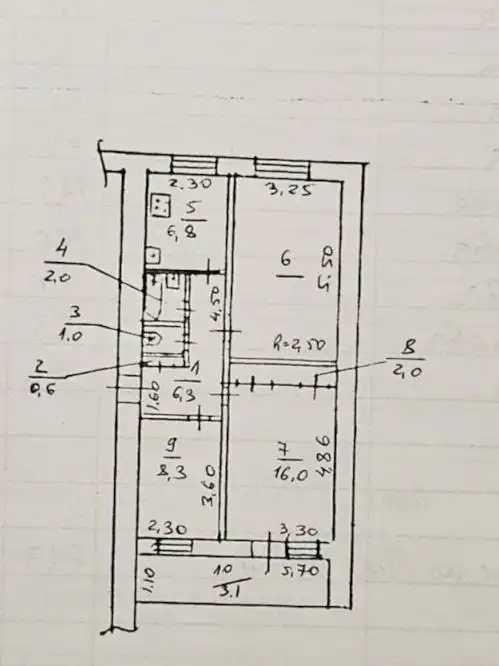 2.30
3,25
5
6,8
4
2.0
6
5.20
4,50
3
1.0
h=2,50
8
2,0
2
0,6
1
6,3
1.60
9
8,3
3,60
7
16,0
4,86
2,30
3,30
1.10
10
3.1
5,70